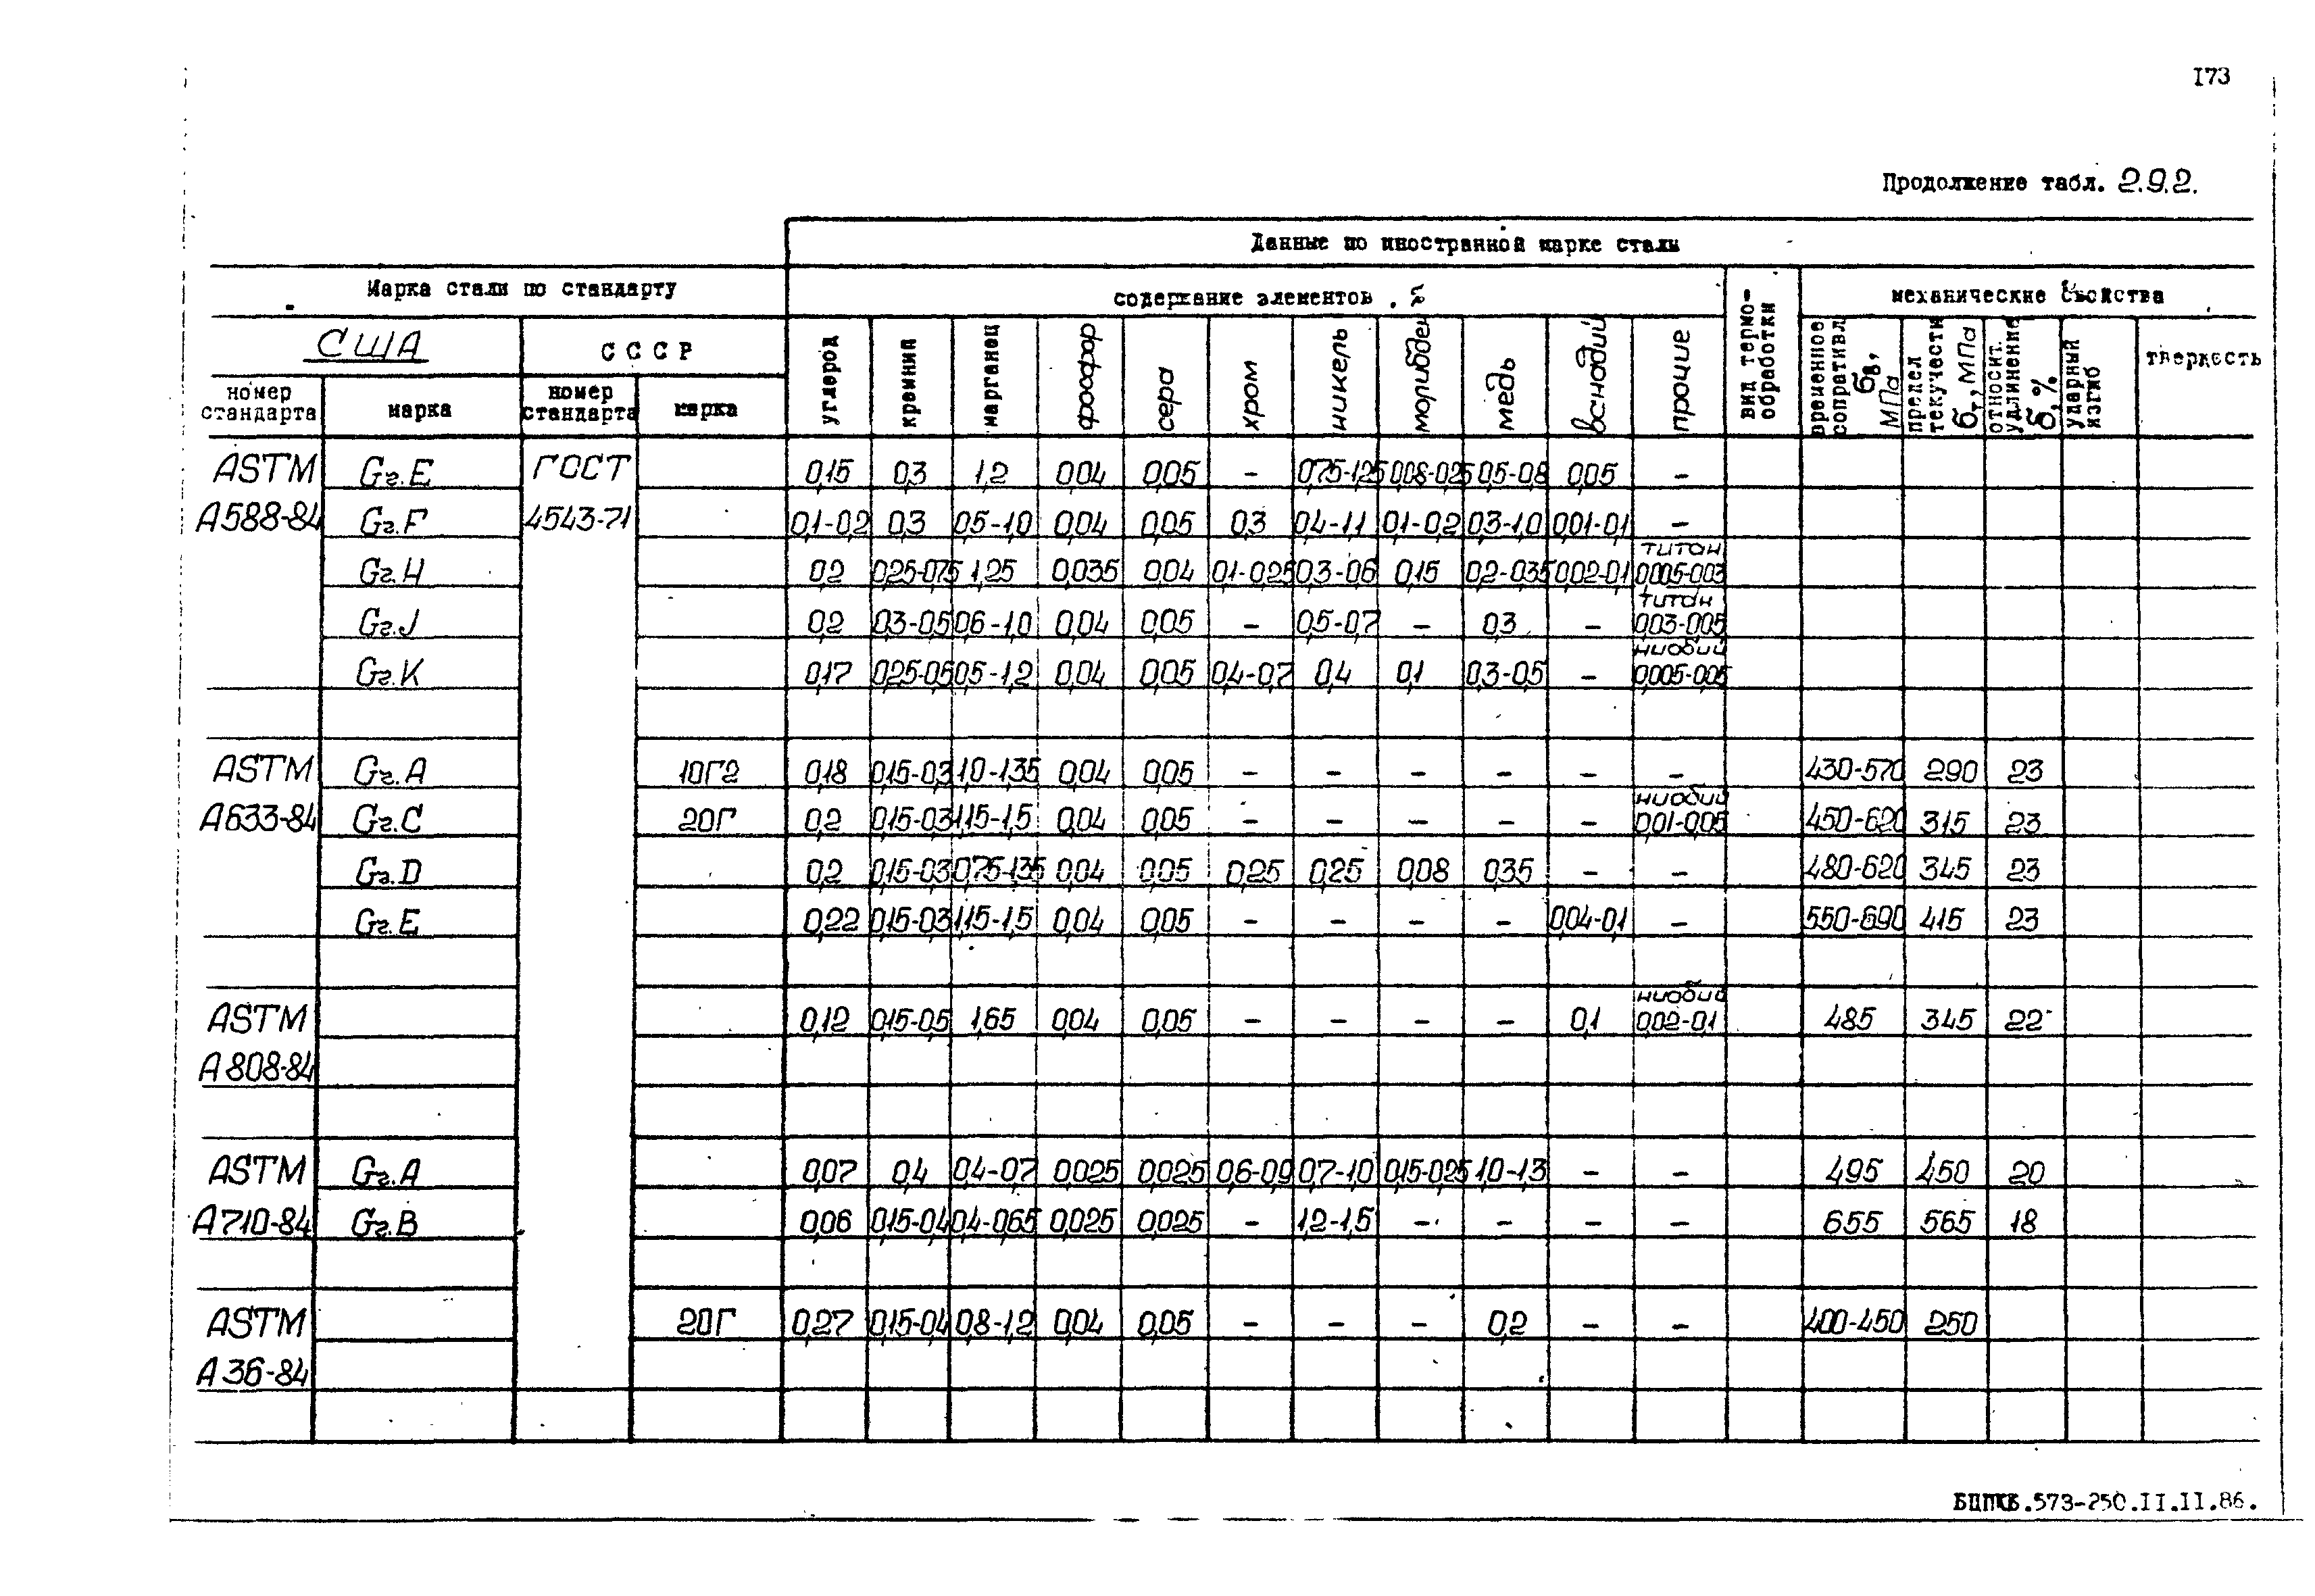 I73
Продолжение табл. 2.9.2.
Данные по иностранной марке стали
Марка стали по стандарту
содержание элементов, %
вид термо-обработки
механические свойства
США
СССР
углерод
кремний
марганец
фосфор
сера
хром
никель
молибден
медь
ванадий
прочие
временное сопративл. σв, МПа
предел текучести σт, МПа
относит. удлинение δ, %
ударный изгиб
твердость
номер стандарта
марка
номер стандарта
марка
ASTM Gr.E ГОСТ 0,15 0,3 1,2 0,04 0,05 – 0,75-1,25 0,08-0,25 0,5-0,8 0,05 –
A588-84 Gr.F 4543-71 0,1-0,2 0,3 0,5-1,0 0,04 0,05 0,3 0,4-1,1 0,1-0,2 0,3-1,0 0,01-0,1 –
титан
Gr.H 0,2 0,25-0,75 1,25 0,035 0,04 0,1-0,25 0,3-0,6 0,15 0,2-0,35 0,02-0,1 0,005-0,03
титан
Gr.J 0,2 0,3-0,5 0,6-1,0 0,04 0,05 – 0,5-0,7 – 0,3 – 0,03-0,05
ниобий
Gr.K 0,17 0,25-0,5 0,5-1,2 0,04 0,05 0,4-0,7 0,4 0,1 0,3-0,5 – 0,005-0,05
ASTM Gr.A 10Г2 0,18 0,15-0,3 1,0-1,35 0,04 0,05 – – – – – – 430-570 290 23
ниобий
A633-84 Gr.C 20Г 0,2 0,15-0,3 1,15-1,5 0,04 0,05 – – – – – 0,01-0,05 450-620 315 23
Gr.D 0,2 0,15-0,3 0,75-1,35 0,04 0,05 0,25 0,25 0,08 0,35 – – 480-620 345 23
Gr.E 0,22 0,15-0,3 1,15-1,5 0,04 0,05 – – – – 0,04-0,1 – 550-690 415 23
ниобий
ASTM 0,12 0,15-0,5 1,65 0,04 0,05 – – – – 0,1 0,02-0,1 485 345 22
A808-84
ASTM Gr.A 0,07 0,4 0,4-0,7 0,025 0,025 0,6-0,9 0,7-1,0 0,15-0,25 1,0-1,3 – – 495 450 20
A710-84 Gr.B 0,06 0,15-0,4 0,4-0,65 0,025 0,025 – 1,2-1,5 – – – – 655 565 18
ASTM 20Г 0,27 0,15-0,4 0,8-1,2 0,04 0,05 – – – 0,2 – – 400-450 250
A36-84
БЦПКБ.573-250.II.II.86.